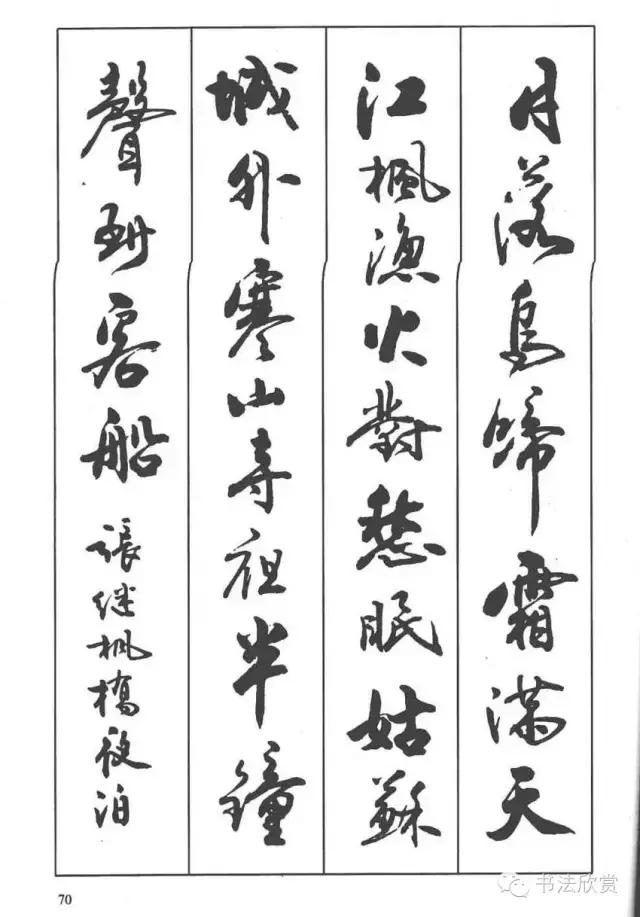 月落烏啼霜滿天
江楓漁火對愁眠姑蘇
城外寒山寺祖半鐘
聲到客船
張继枫橋夜泊
70
书法欣赏